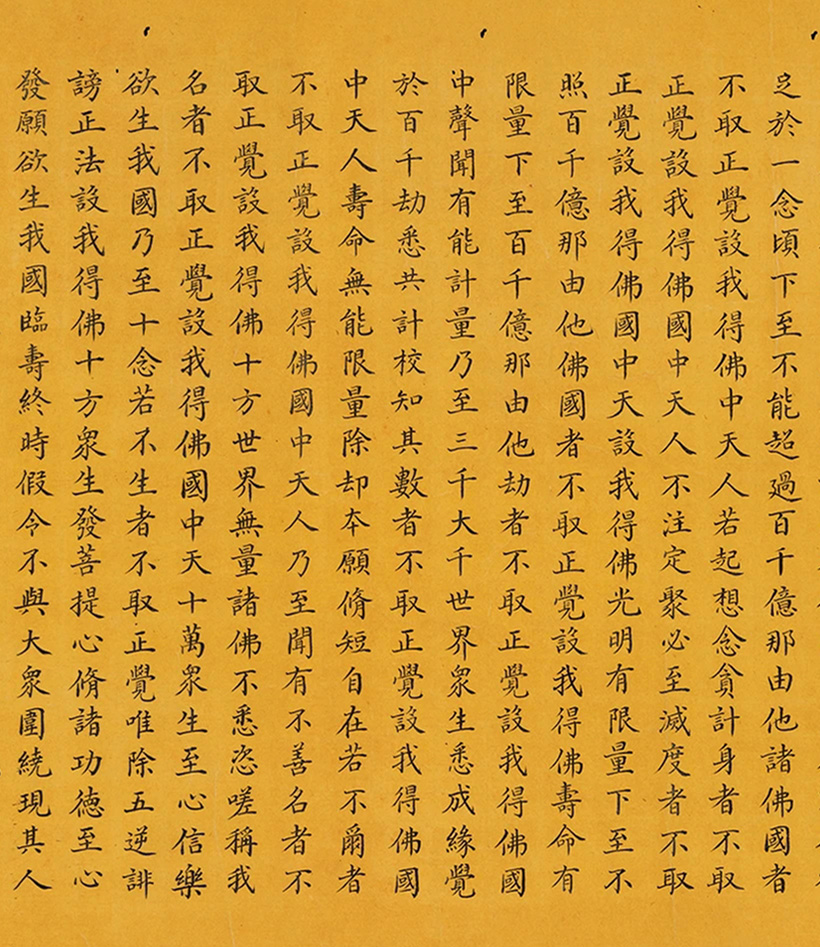 足於一念頃下至不能超過百千億那由他諸佛國者
不取正覺設我得佛中天人若起想念貪計身者不取
正覺設我得佛國中天人不注定聚必至滅度者不取
正覺設我得佛國中天設我得佛光明有限量下至不
照百千億那由他佛國者不取正覺設我得佛壽命有
限量下至百千億那由他劫者不取正覺設我得佛國
中聲聞有能計量乃至三千大千世界衆生悉成緣覺
於百千劫悉共計校知其數者不取正覺設我得佛國
中天人壽命無能限量除却本願脩短自在若不爾者
不取正覺設我得佛國中天人乃至聞有不善名者不
取正覺設我得佛十方世界無量諸佛不悉恣嗟稱我
名者不取正覺設我得佛國中天十萬衆生至心信樂
欲生我國乃至十念若不生者不取正覺唯除五逆誹
謗正法設我得佛十方衆生發菩提心脩諸功德至心
發願欲生我國臨壽終時假令不與大衆圍繞現其人